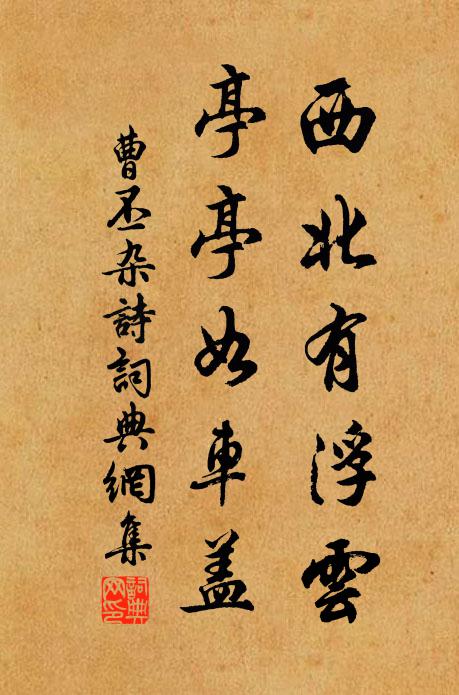 西北有浮雲
亭亭如車盖
曹丕杂詩詞典網集
詞典网印